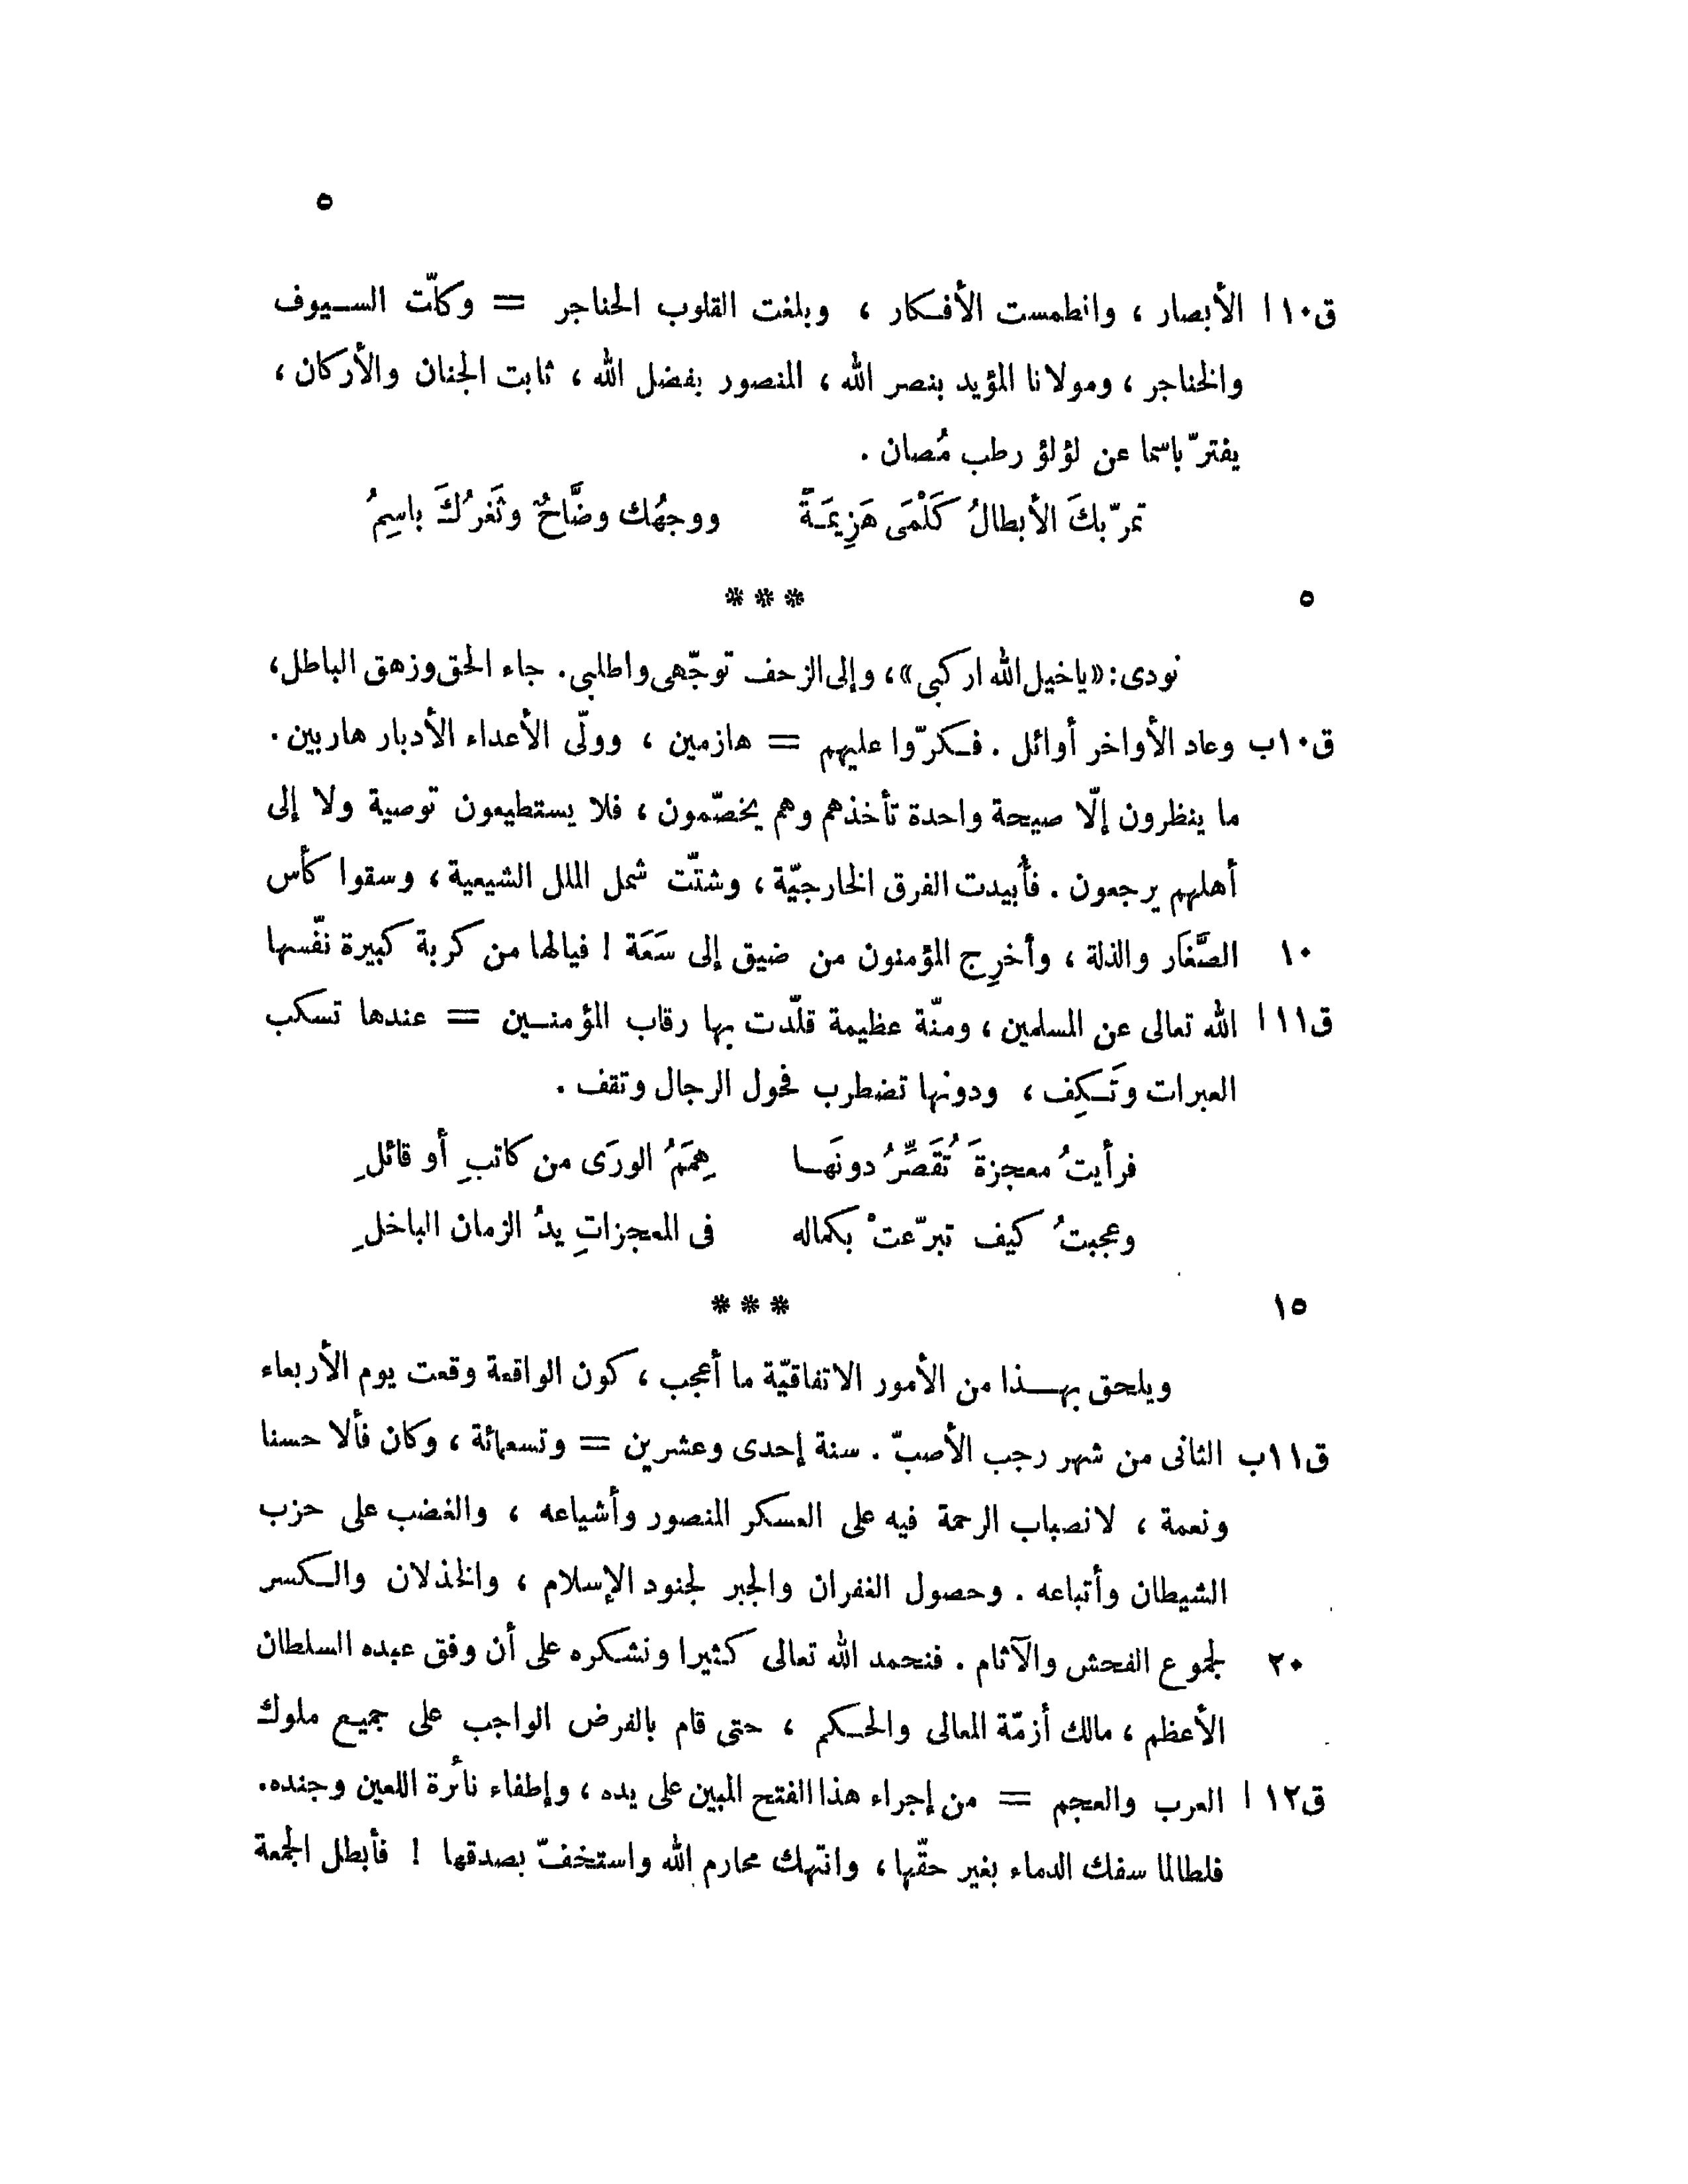 ٥
ق١٠ا الأبصار ، وانطمست الأفكار ، وبلغت القلوب الحناجر = وكلّت السيوف
والخناجر ، ومولانا المؤيد بنصر الله ، المنصور بفضل الله ، ثابت الجنان والأركان ،
يفترّ باسما عن لؤلؤ رطب مُصان .
تمرّ بكَ الأبطالُ كَلْمَى هَزِيمَةً ووجهُك وضَّاحٌ وثَغرُكَ باسِمُ
٥ ***
نودى : «ياخيل الله اركبى» ، وإلى الزحف توجّهى واطلبى . جاء الحق وزهق الباطل ،
ق١٠ب وعاد الأواخر أوائل . فكرّوا عليهم = هازمين ، وولّى الأعداء الأدبار هاربين .
ما ينظرون إلّا صيحة واحدة تأخذهم وهم يخصّمون ، فلا يستطيعون توصية ولا إلى
أهلهم يرجعون . فأُبيدت الفرق الخارجيّة ، وشتّت شمل الملل الشيعية ، وسقوا كأس
١٠ الصَّغَار والذلة ، وأخرِج المؤمنون من ضيق إلى سَعَة ! فيالها من كربة كبيرة نفّسها
ق١١ا الله تعالى عن المسلمين ، ومنّة عظيمة قلّدت بها رقاب المؤمنين = عندها تسكب
العبرات وتَكِف ، ودونها تضطرب فحول الرجال وتقف .
فرأيتُ معجزةَ تُقَصِّرُ دونَها هِمَمُ الورَى من كاتبِ أو قائلِ
وعجبتُ كيف تبرّعتْ بكماله فى المعجزاتِ يدُ الزمان الباخلِ
١٥ ***
ويلحق بهذا من الأمور الاتفاقيّة ما أعجب ، كون الواقعة وقعت يوم الأربعاء
ق١١ب الثانى من شهر رجب الأصبّ . سنة إحدى وعشرين = وتسعمائة ، وكان فألا حسنا
ونعمة ، لانصباب الرحمة فيه على العسكر المنصور وأشياعه ، والغضب على حزب
الشيطان وأتباعه . وحصول الغفران والجبر لجنود الإسلام ، والخذلان والكسر
٢٠ لجموع الفحش والآثام . فنحمد الله تعالى كثيرا ونشكره على أن وفق عبده السلطان
الأعظم ، مالك أزمّة المعالى والحكم ، حتى قام بالفرض الواجب على جميع ملوك
ق١٢ا العرب والعجم = من إجراء هذا الفتح المبين على يده ، وإطفاء نائرة اللعين وجنده .
فلطالما سفك الدماء بغير حقّها ، وانتهك محارم الله واستخفّ بصدقها ! فأبطل الجمعة